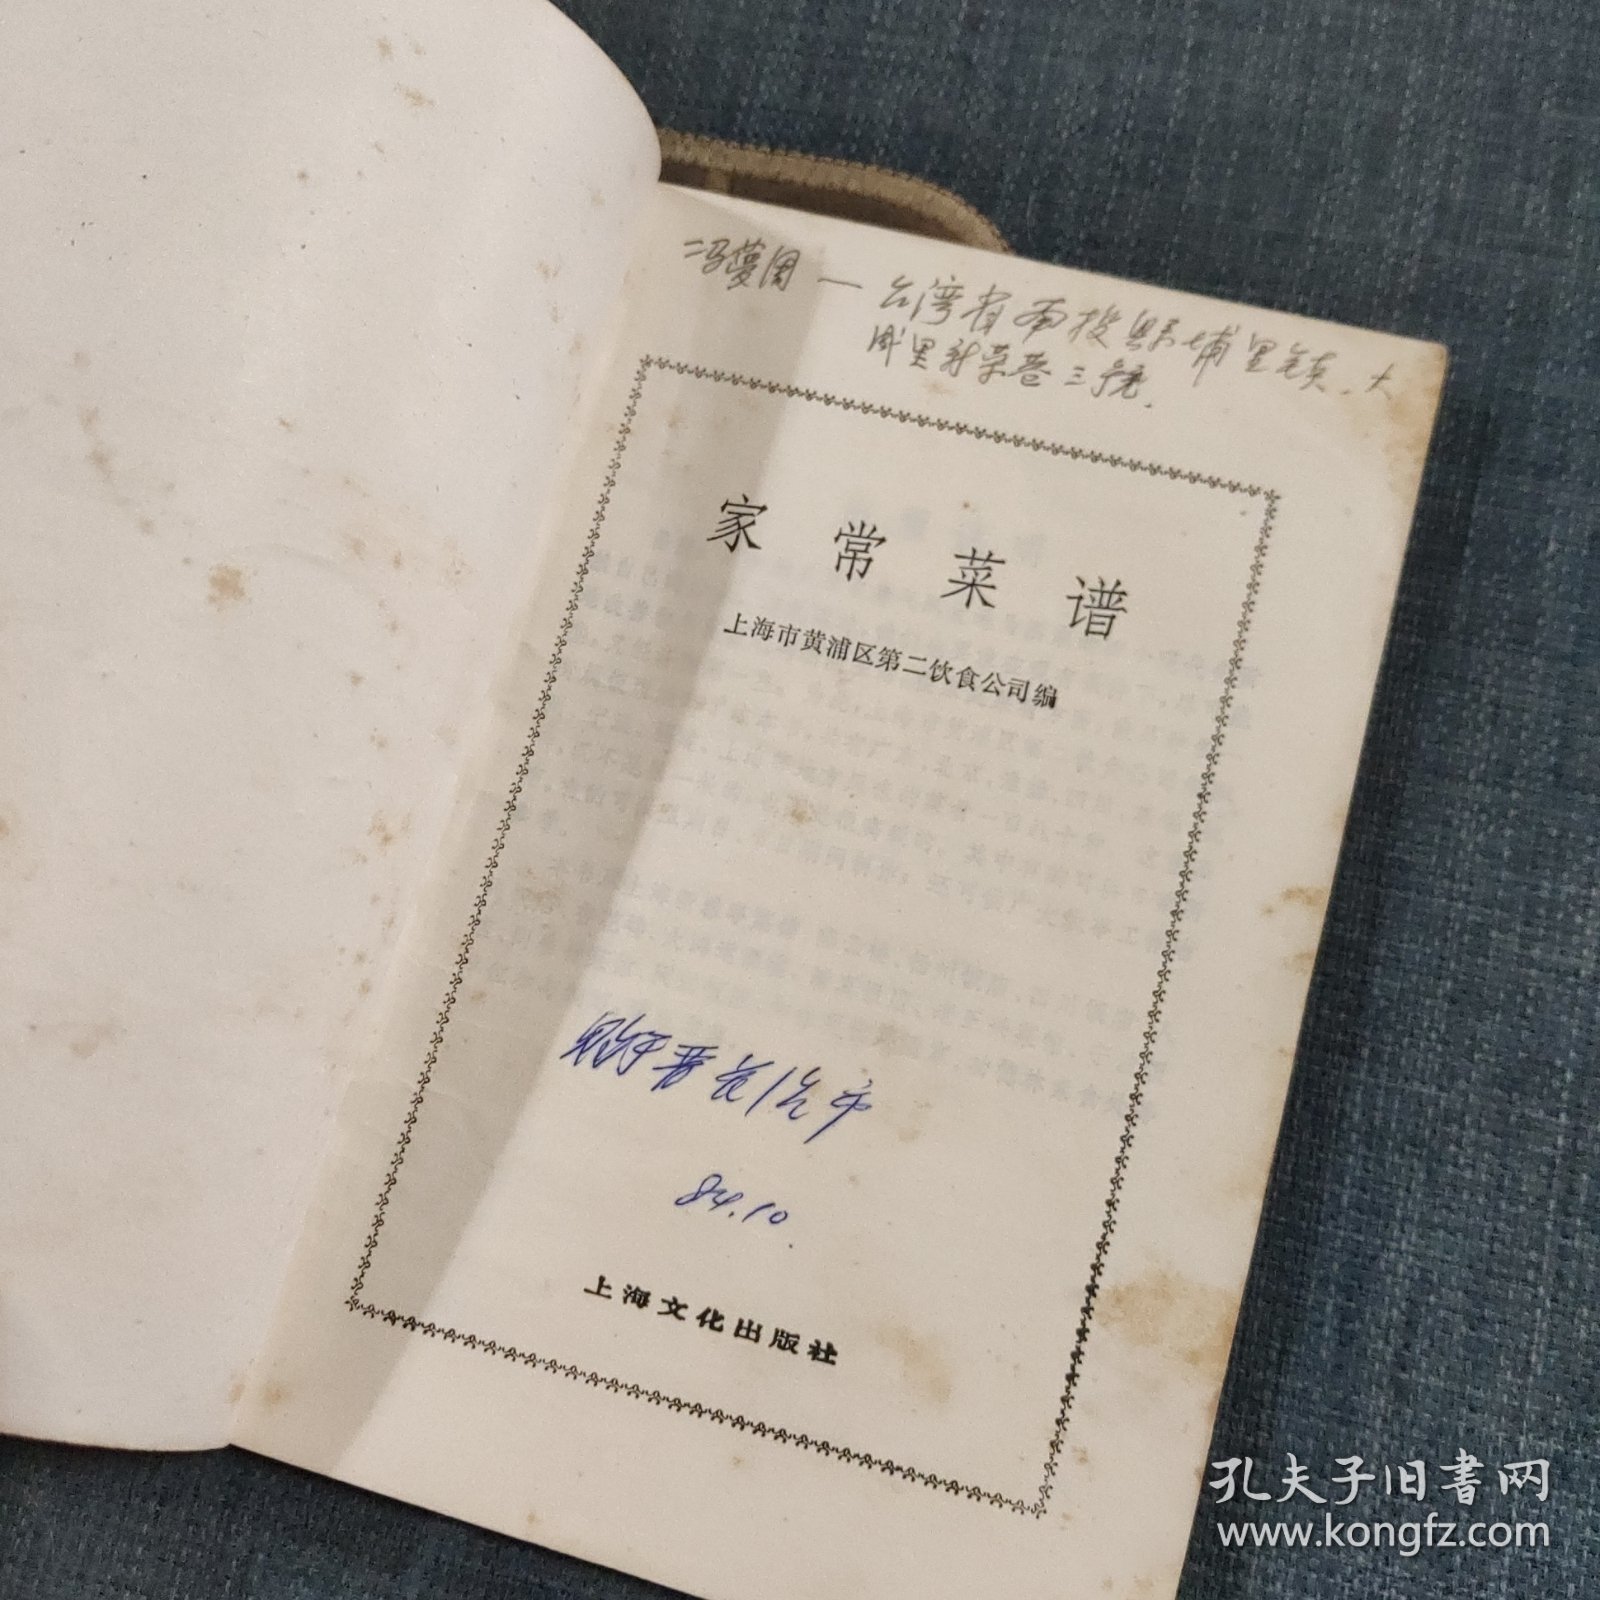 冯蔓園 — 台湾省南投縣埔里鎮.大
成里新荣巷三號.
家常菜谱
上海市黄浦区第二饮食公司编
购于晋
84.10
上海文化出版社
孔夫子旧书网
www.kongfz.com